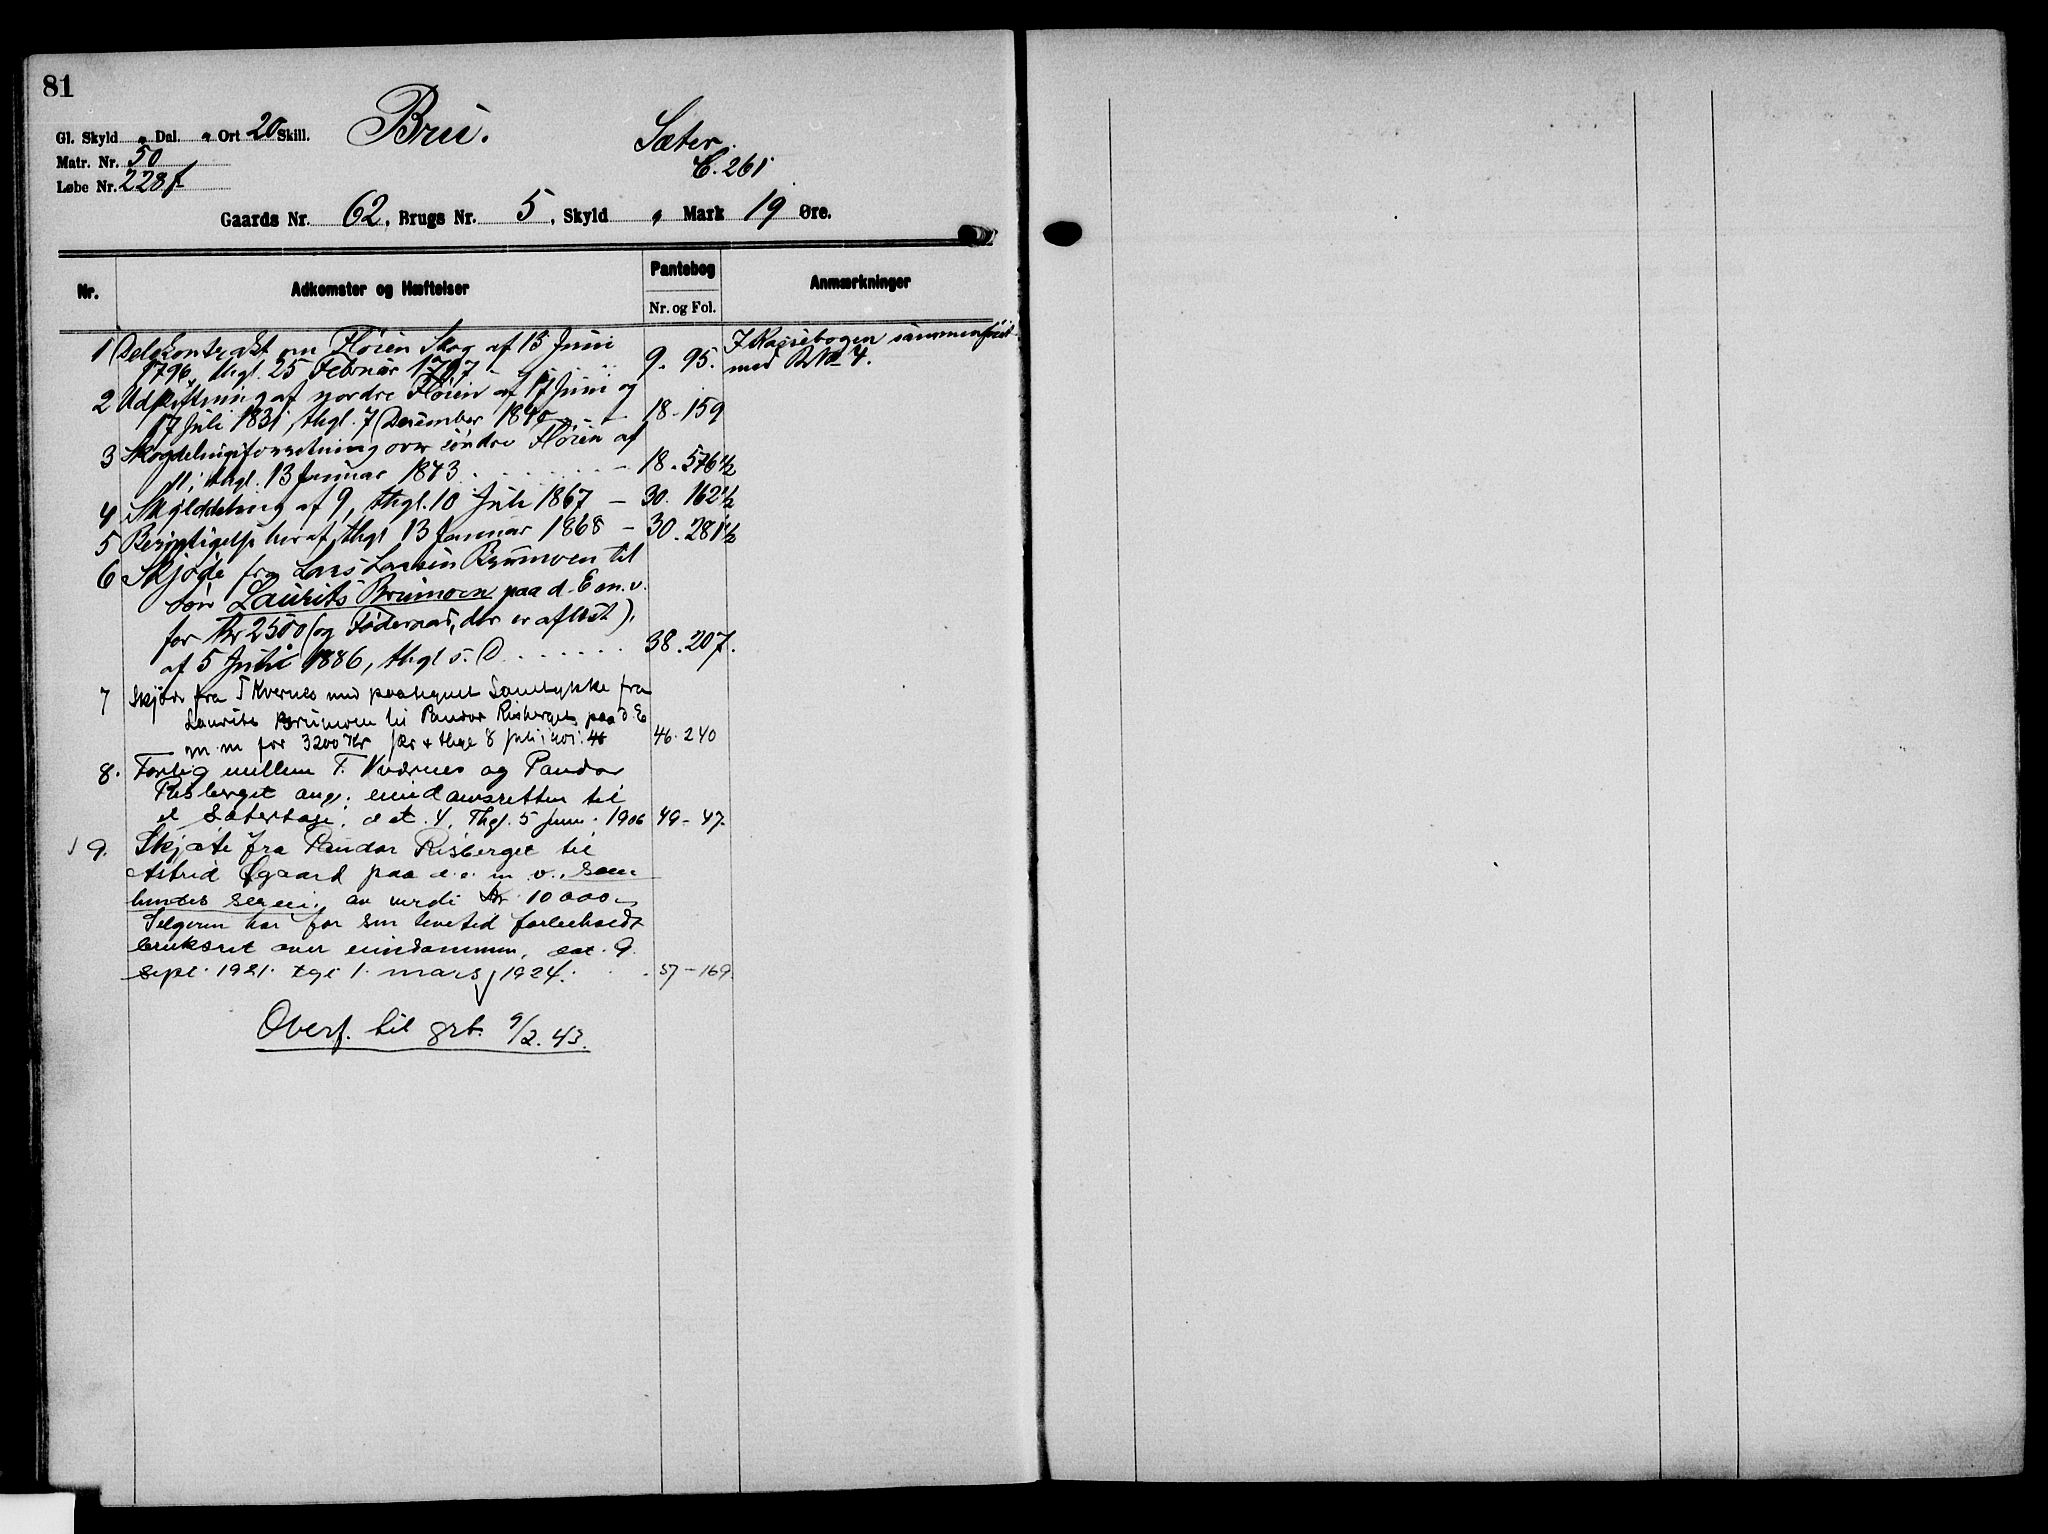 81
Gl. Skyld „ Dal. „ Ort 20 Skill.
Bru.
Sæter.
Matr. Nr. 50
C. 261
Løbe Nr. 228f
Gaards Nr. 62, Brugs Nr. 5, Skyld „ Mark 19 Øre.
Nr.
Adkomster og Hæftelser
Pantebog
Nr. og Fol.
Anmærkninger
1 Delekontrakt om Fløien Skog af 13 Juni
1796, thgl. 25 Februar 1797 - 9. 95.
I Kassebogen sammenført
med B No 4.
2 Udskiftning af nordre Fløien af 17 Juni og
17 Juli 1831, thgl. 7 December 1840 - 18 - 159
3 Skogdelingsforretning over søndre Fløien af
11, thgl. 13 Januar 1843 - 18. 576 1/2
4 Skylddeling af 9, thgl. 10 Juli 1867 - 30. 162 1/2
5 Berigtigelse heraf, thgl 13 Januar 1868 - 30. 281 1/2
6 Skjøde fra Lars Larsen Brumoen til
søn Laurits Brumoen paa d. E m. v.
for Kr 2500 (og Føderaad, der er aflæst),
af 5 Juli 1886, thgl s. D 38. 207.
7 Skjøde fra T Kvernes med paategnet Samtykke fra
Laurits Brumoen til Pandor Risberget paa d. E
m. m for 3200 Kr 46. 240
8. Forlig mellem T. Kværnes og Pandor
Risberget ang. eiendomsretten til
et Sæterhage, dat. 4, Thgl. 5 Juni 1906 49 - 47.
9. Skjøte fra Pandor Risberget til
Astrid Øgaard paa d. e. m v., som
hendes særeie, av verdi Kr 10 000 -
Selgeren har for sin levetid forbeholdt
bruksret over eiendommen, dat. 9
sept. 1921. tgl 1. mars 1924. 57 - 169.
Overf. til grb. 9/2. 43.